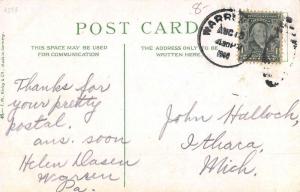 8-
POST CARD
THIS SPACE MAY BE USED
FOR COMMUNICATION
THE ADDRESS ONLY TO BE
WRITTEN HERE
WARREN
AUG
1908
Thanks for
your pretty
postal.
ans. soon
Helen Dasen
Warren
Pa.
John Hallock,
Ithaca
Mich.